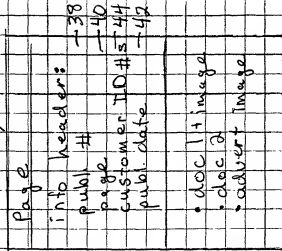 Page
info header:
publ. # → 38
page → 40
customer ID #s → 44
publ. date → 42
• doc 1 + image
• doc 2
• advert image